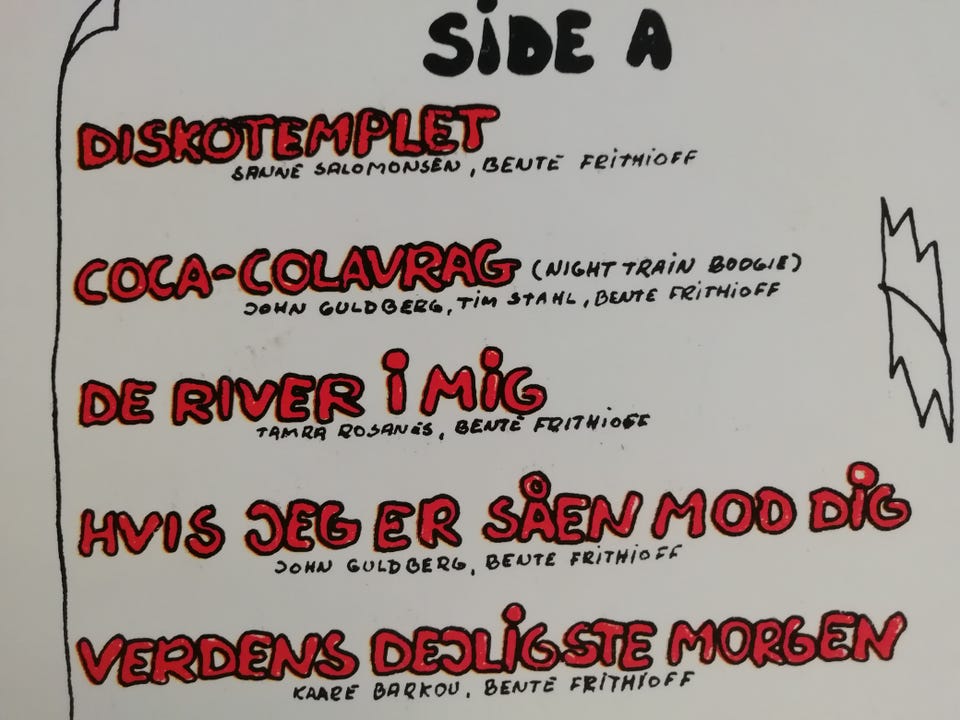 SIDE A
DISKOTEMPLET
SANNE SALOMONSEN, BENTE FRITHIOFF
COCA-COLAVRAG (NIGHT TRAIN BOOGIE)
JOHN GULDBERG, TIM STAHL, BENTE FRITHIOFF
DE RIVER I MIG
TAMRA ROSANES, BENTE FRITHIOFF
HVIS JEG ER SÅEN MOD DIG
JOHN GULDBERG, BENTE FRITHIOFF
VERDENS DEJLIGSTE MORGEN
KAARE BARKOU, BENTE FRITHIOFF